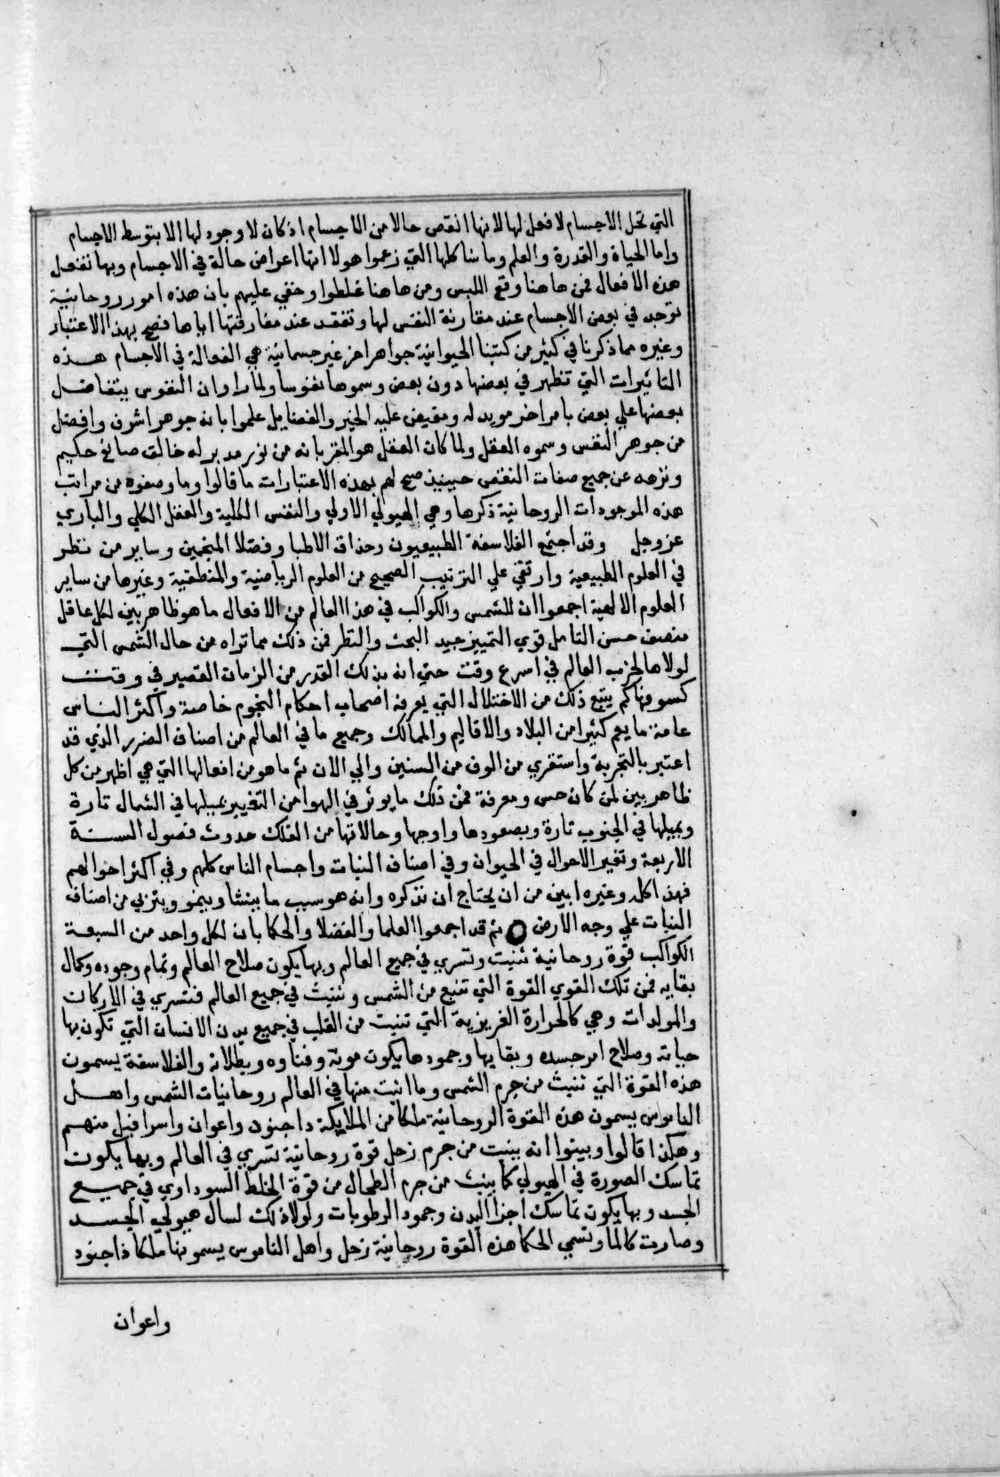 التي تحل الاجسام لا فعل لها لانها انقص حالا من الاجسام اذ كان لا وجود لها الا بتوسط الاجسام
واما الحياة والقدرة والعلم وما شاكلها التي زعموا هولا انها اعراض حالة في الاجسام وبها تفعل
هذه الافعال فمن هاهنا وقع اللبس ومن هاهنا غلطوا وخفي عليهم بان هذه امور روحانية
توجد في بعض الاجسام عند مقارنة النفس لها وتفقد عند مفارقتها اياها فصح بهذا الاعتبار
وغيره مما ذكرنا في كثير من كتبنا الحيوانية جواهر اخر غير جسمانية هي الفعالة في الاجسام هذه
التاثيرات التي تظهر في بعضها دون بعض وسموها نفوسا ولما راوا ان النفوس يتفاضل
بعضها علي بعض بامر اخر مويد له ومفيض عليه الخير والفضايل علموا بانه جوهر اشرف وافضل
من جوهر النفس وسموه العقل ولما كان العقل هو المقر بانه من نور مدبر له خالق صانع حكيم
ونزهه عن جميع صفات النقص حينيذ صح لهم بهذه الاعتبارات ما قالوا وما وصفوه من مراتب
هذه الموجودات الروحانية ذكرها وهي الهيولي الاولي والنفس الكلية والعقل الكلي والباري
عز وجل وقد اجتمع الفلاسفة الطبيعيون وحذاق الاطبا وفضلا المنجمين وساير من نظر
في العلوم الطبيعية وارتقي علي الترتيب الصحيح من العلوم الرياضية والمنطقية وغيرها من ساير
العلوم الالهية اجمعوا ان للشمس والكواكب في هذا العالم من الافعال ما هو ظاهر بين لكل عاقل
منصف حسن التامل قوي التمييز جيد البحث والنظر فمن ذلك مما تراه من حال الشمس التي
لولاها لخرب العالم في اسرع وقت حتي انه بذلك القدر من الزمان القصير في وقت
كسوفها كم يتبع ذلك من الاختلال التي يعرفه اصحاب احكام النجوم خاصة واكثر الناس
عامة ما يعم كثيرا من البلاد والاقاليم والممالك وجميع ما في العالم من اصناف الضرر الذي قد
اعتبر بالتجربة واستقري من الوف من السنين والي الان ثم ما هو من افعالها التي هي اظهر من كل
ظاهر بين لمن كان حسن ومعرفة فمن ذلك ما يوثر في الهوا من التغيير بميلها في الشمال تارة
وبميلها في الجنوب تارة وبصعودها واوجها وحالاتها من الفلك حدوث فصول السنة
الاربعة وتغير الاحوال في الحيوان وفي اصناف النبات واجسام الناس كلهم وفي اكثر احوالهم
فهذا كله وغيره ابين من ان يحتاج ان نذكره وانه هو سبب ما ينشا وينمو ويتربي من اصناف
النبات علي وجه الارض ثم قد اجمعوا العلما والفضلا والحكما بان لكل واحد من السبعة
الكواكب قوة روحانية تنبت وتسري في جميع العالم وبها يكون صلاح العالم وتمام وجوده وكمال
بقايه فمن تلك القوي القوة التي تنبع من الشمس وتنبث في جميع العالم فتسري في الاركان
والمولدات وهي كالحرارة الغريزية التي تنبت من القلب في جميع بدن الانسان التي تكون بها
حياته وصلاح امر جسده وبقايها وجمودها يكون موته وفناوه وبطلانه والفلاسفة يسمون
هذه القوة التي تنبث من جرم الشمس وما انبت منها في العالم روحانيات الشمس واهل
الناموس يسمون هذه القوة الروحانية ملكا من الملايكة ذا جنود واعوان واسرافيل منهم
وهكذا قالوا وبينوا انه ينبت من جرم زحل قوة روحانية تسري في العالم وبها يكون
تماسك الصورة في الهيولي كما ينبث من جرم الطحال من قوة الخلط السوداوي في جميع
الجسد وبها يكون تماسك اجزا البدن وجمود الرطوبات ولولا ذلك لسال هيولي الجسد
وصارت كالما وتسمي الحكما هذه القوة روحانية زحل واهل الناموس يسمونها ملكا ذا جنود
واعوان